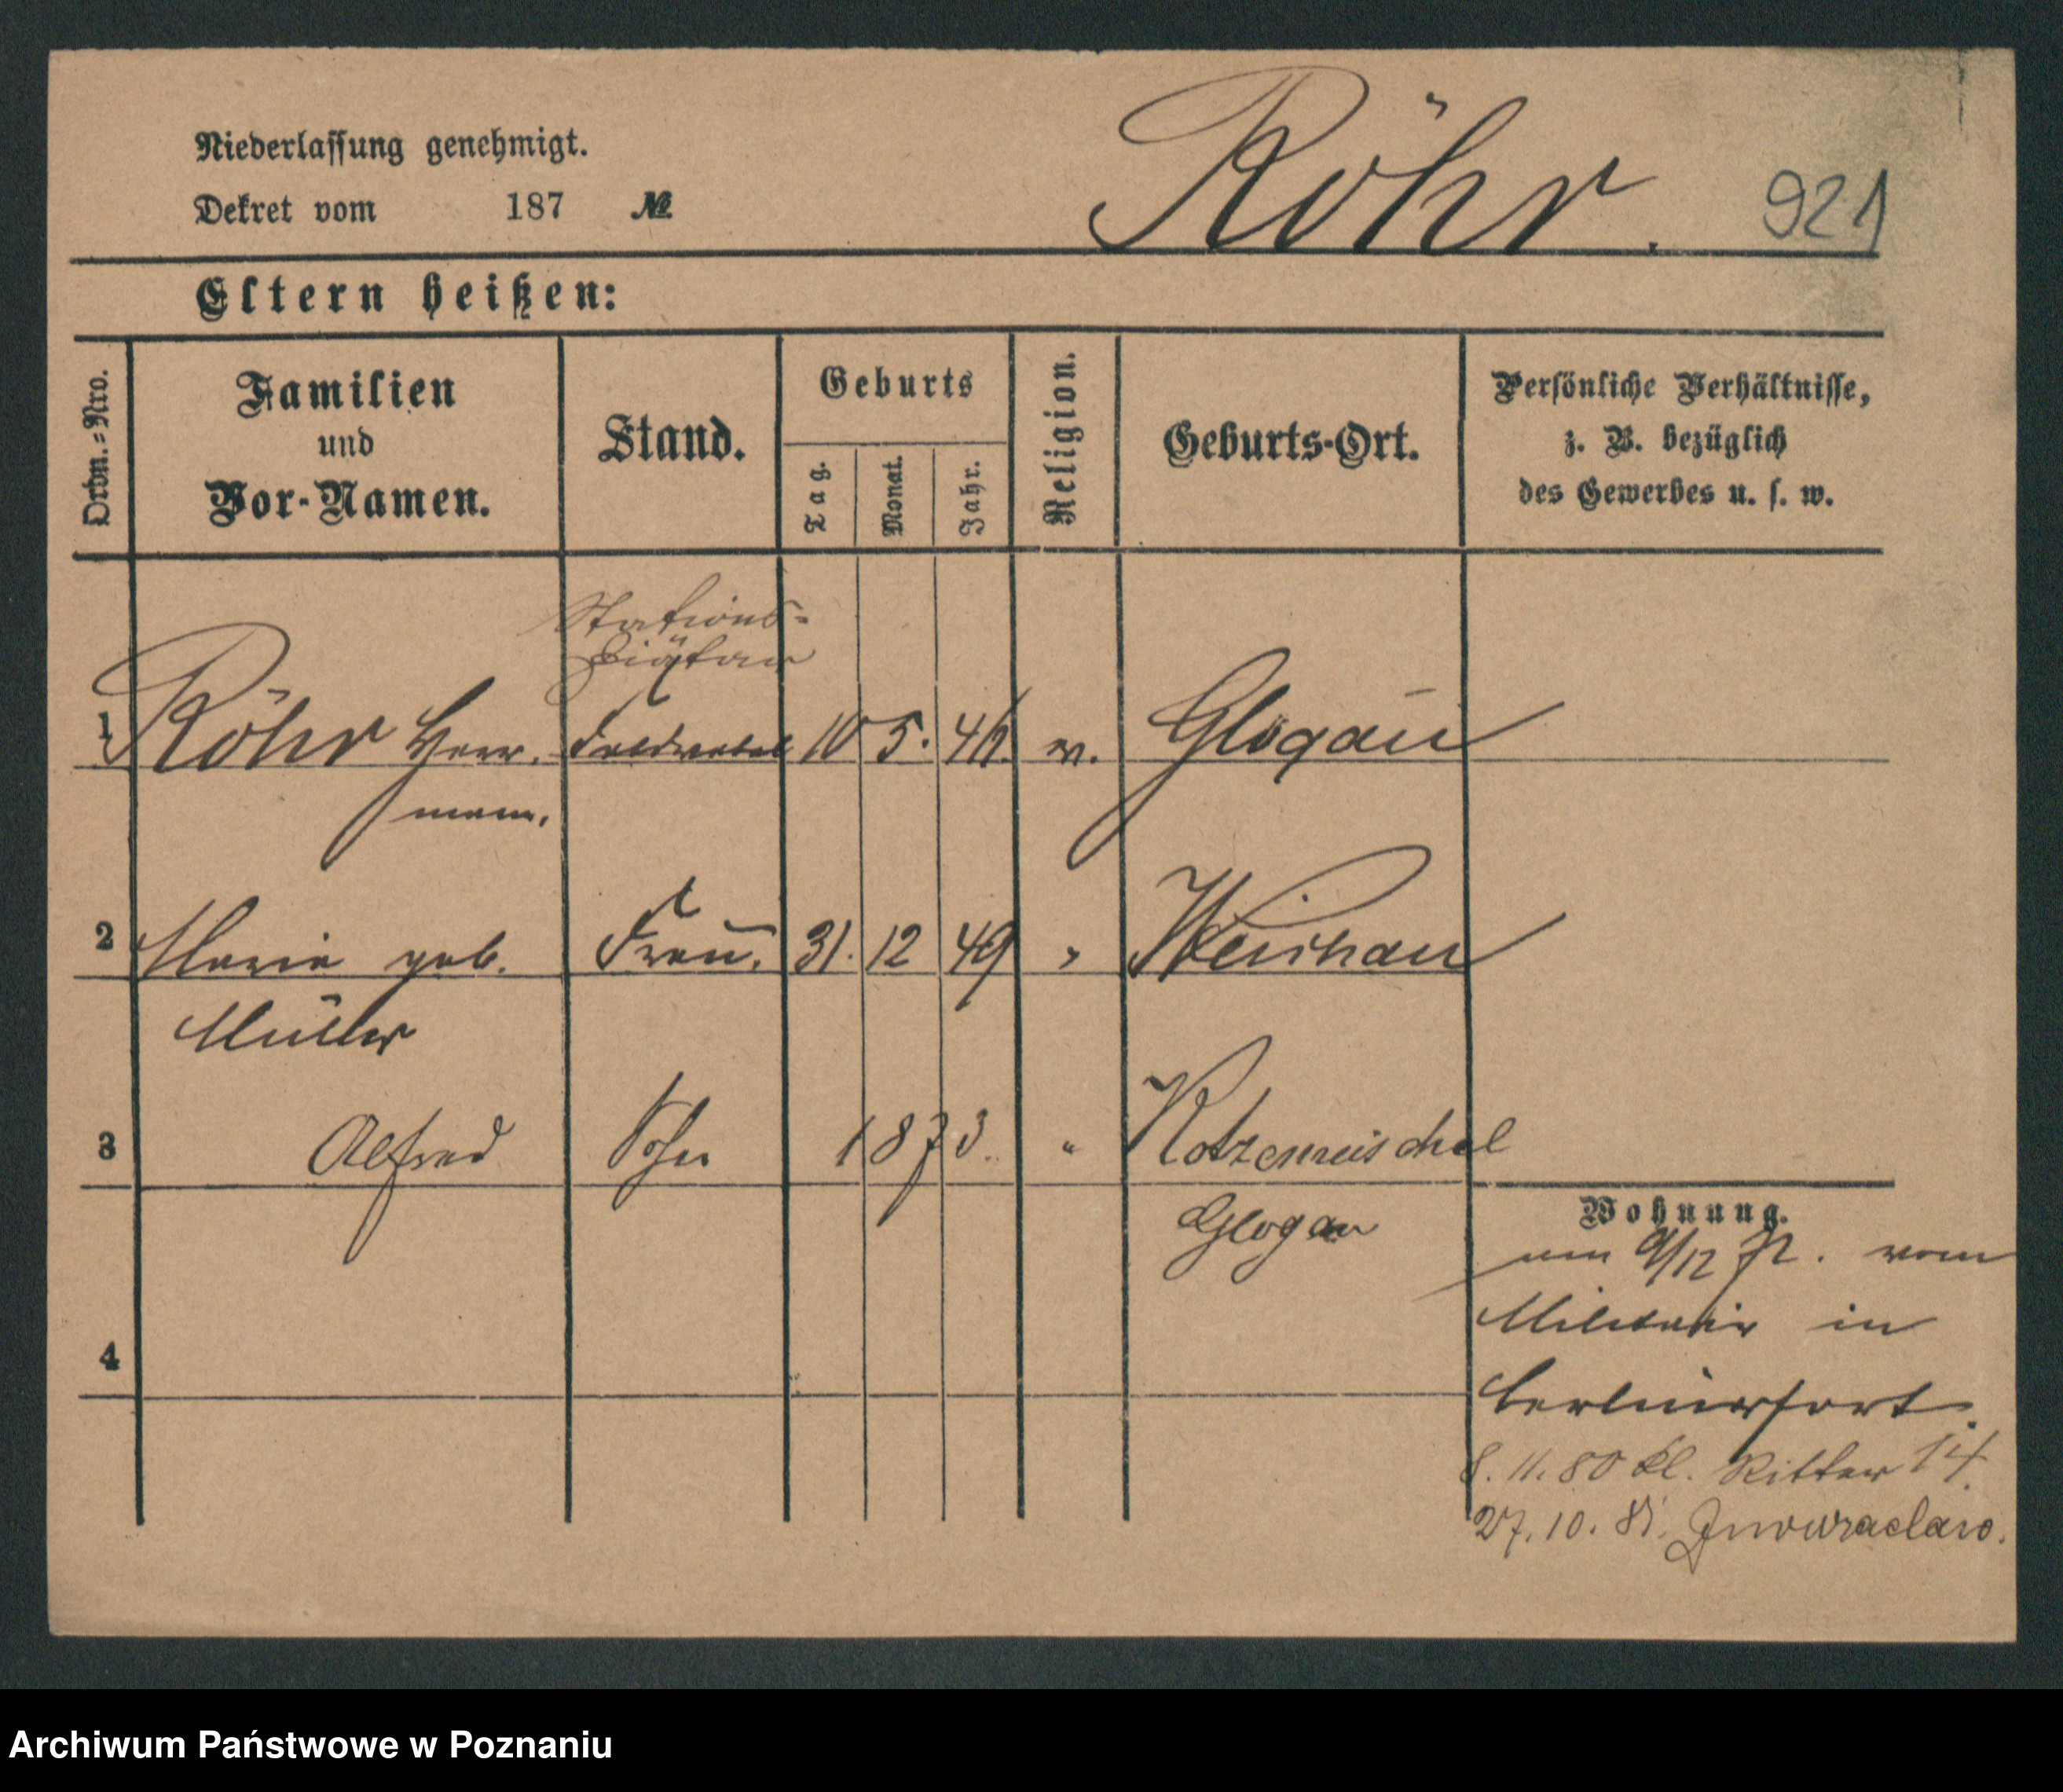 Niederlassung genehmigt.
Dekret vom 187 №
Röhr. 921
Eltern heißen:
Ordn.=Nro.
Familien
und
Vor-Namen.
Stand.
Geburts
Tag.
Monat.
Jahr.
Religion.
Geburts-Ort.
Persönliche Verhältnisse,
z. B. bezüglich
des Gewerbes u. s. w.
Stations-
Diätar
1 Röhr Herr- Feldwebel 10 5. 46. ev. Glogau
mann.
2 Marie geb. Frau. 31. 12 49 " Weishau
Müller
3 Alfred Sohn 1873. " Kotzemeischel
Glogau
4
Wohnung.
9/12 72. vom
Militair in
Berlinerfort.
8. 11. 80 kl. Ritter 14.
27. 10. 81. Inowraclaw.
Archiwum Państwowe w Poznaniu